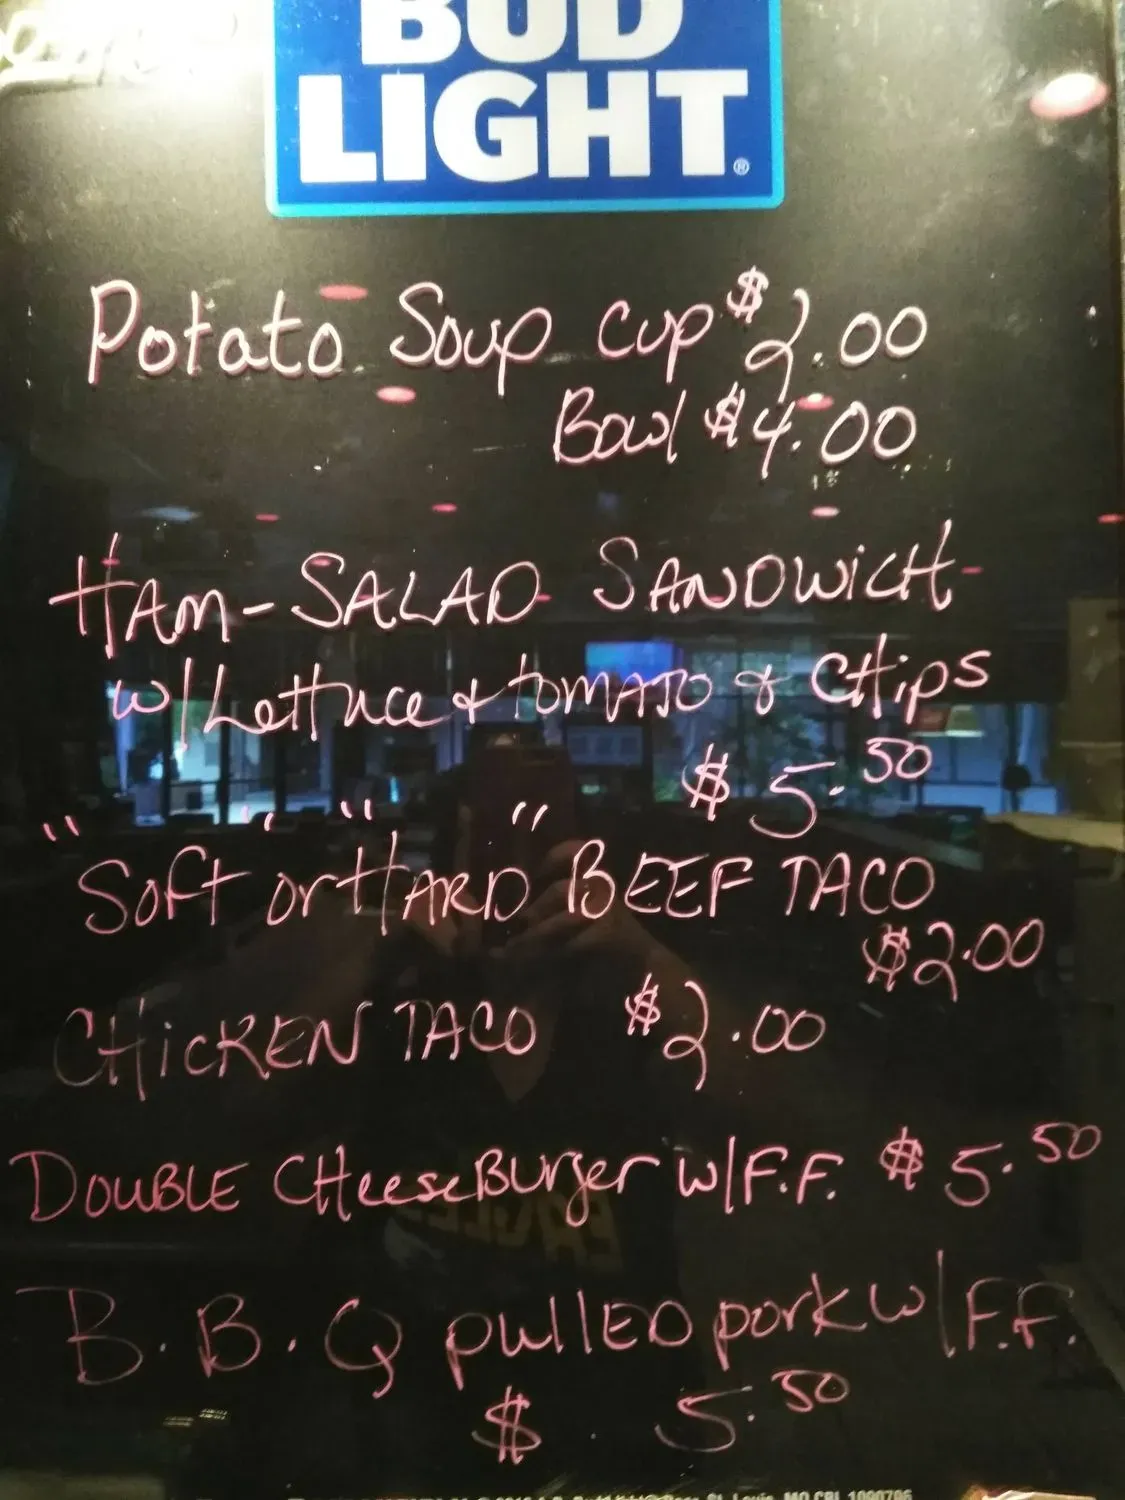 BUD
LIGHT®
Potato Soup cup $2.00
Bowl $4.00
HAM-SALAD SANDWICH
w/Lettuce & TOMATO & CHIPS
$5.50
"Soft" or "HARD" BEEF TACO
$2.00
CHICKEN TACO $2.00
DOUBLE CHeeseBurger w/F.F. $5.50
B.B.Q pullED pork w/F.F.
$5.50
St. Louis, MO CBL 1090796